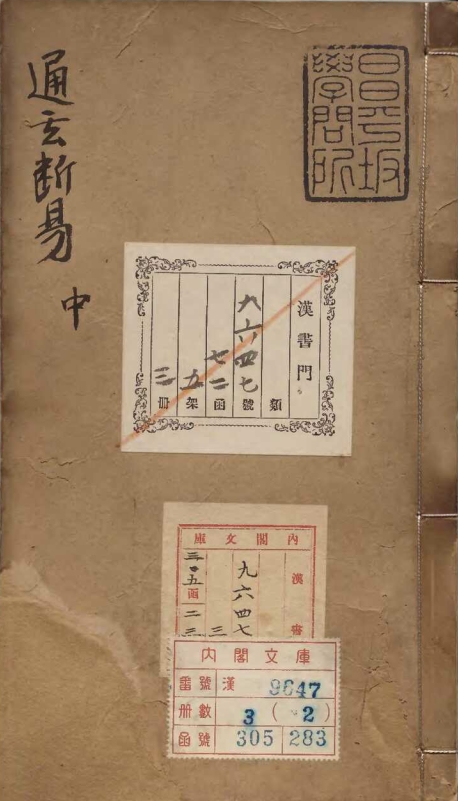 通玄断易 中
昌平坂
學問所
漢書門
類
九六四七號
七二函
五架
三冊
內閣文庫
漢書
九六四七
三
內閣文庫
番號 漢 9647
册數 3 ( 2 )
函號 305 283